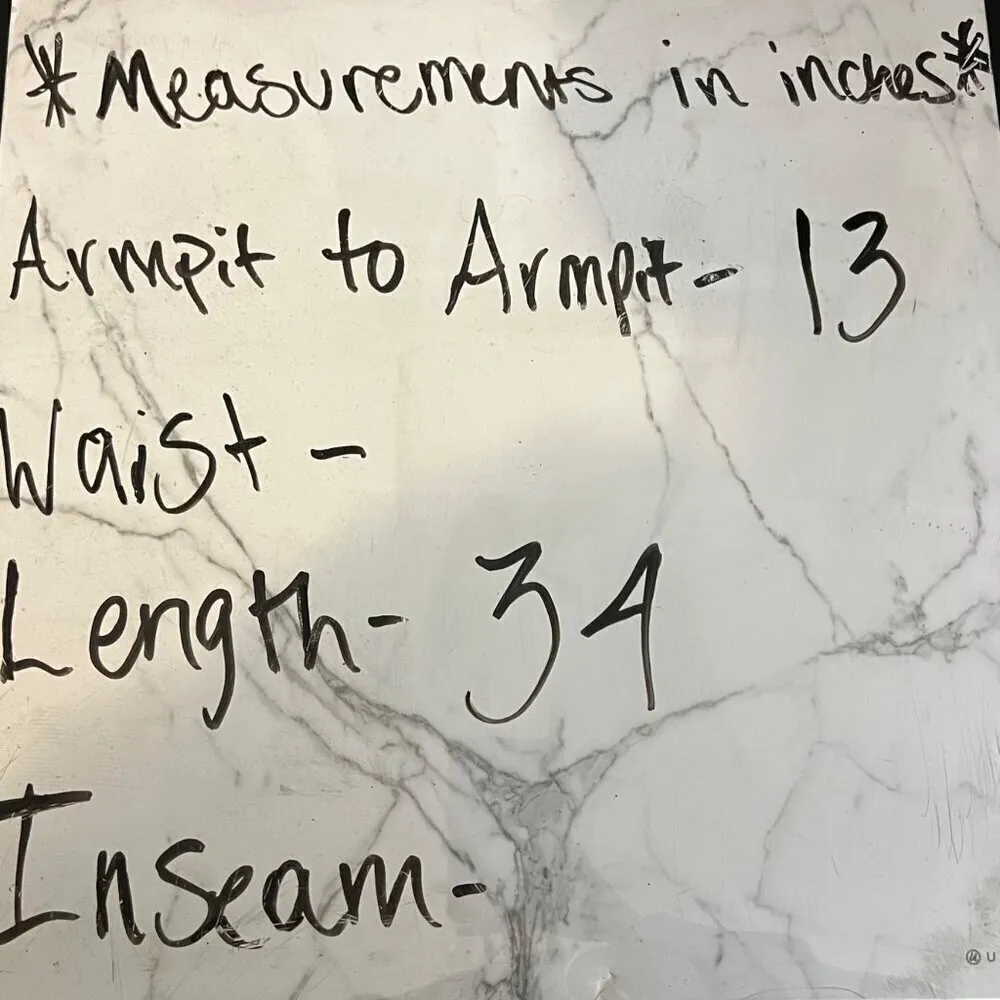 *Measurements in inches*
Armpit to Armpit- 13
Waist -
Length- 34
Inseam-
U